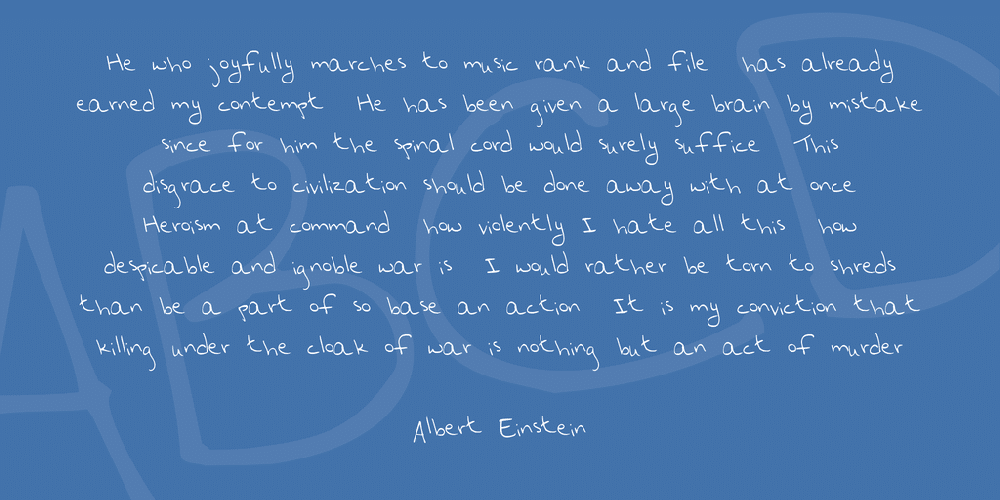 He who joyfully marches to music rank and file has already
earned my contempt He has been given a large brain by mistake
since for him the spinal cord would surely suffice This
disgrace to civilization should be done away with at once
Heroism at command how violently I hate all this how
despicable and ignoble war is I would rather be torn to shreds
than be a part of so base an action It is my conviction that
killing under the cloak of war is nothing but an act of murder
Albert Einstein
ABCD